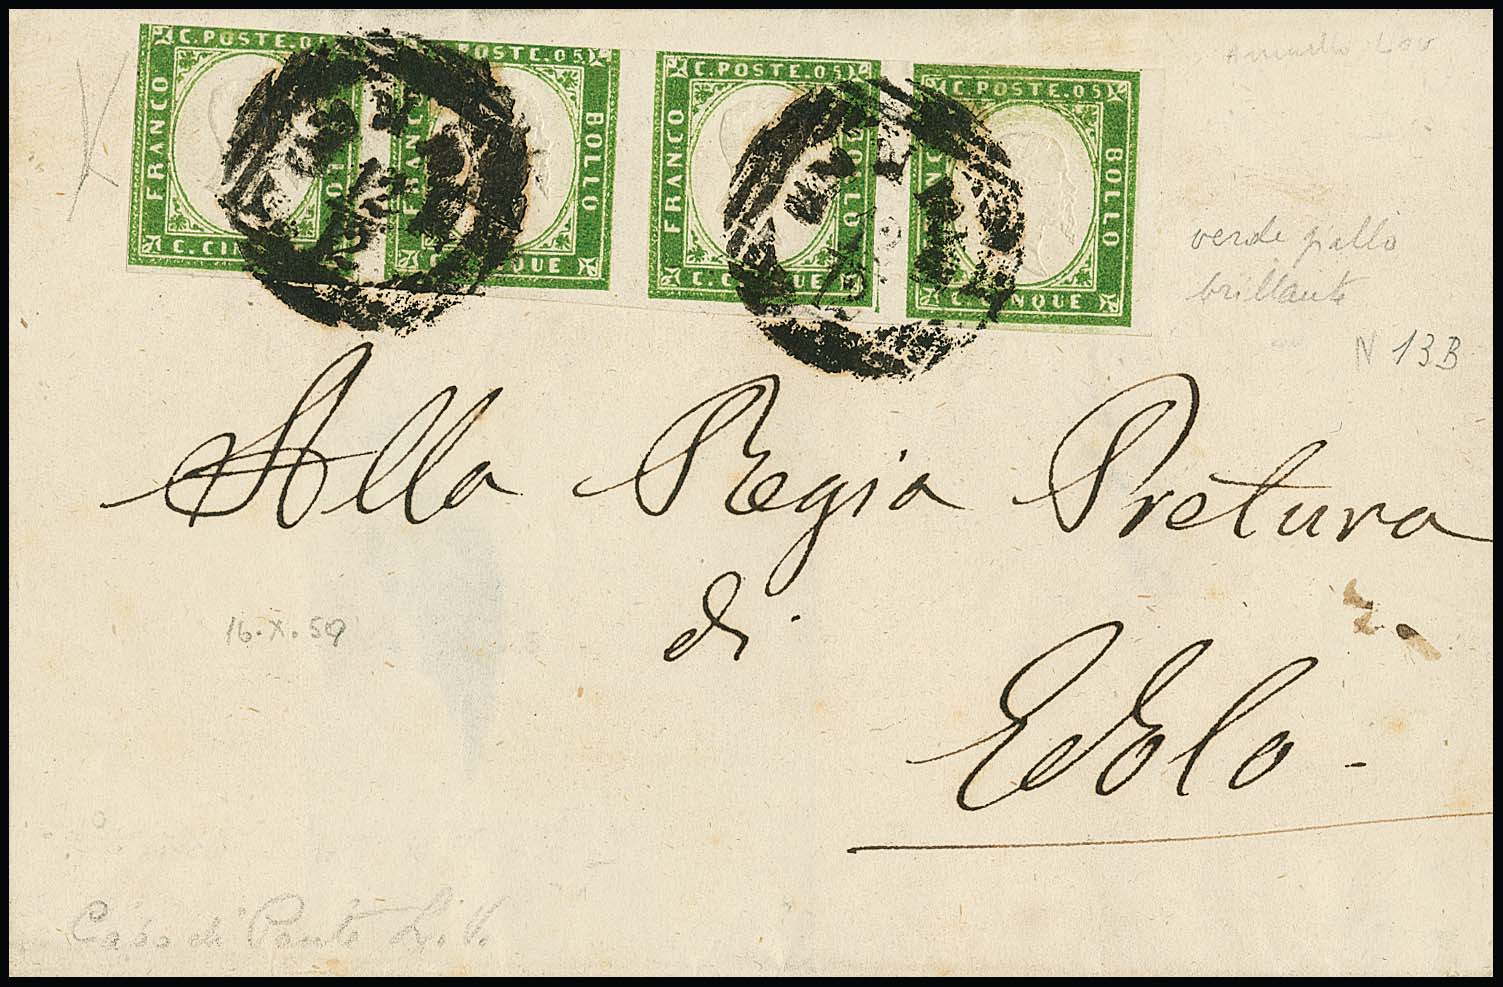 C. POSTE. 05 POSTE. 05 C. POSTE. 05 C. POSTE. 05
FRANCO BOLLO FRANCO BOLLO FRANCO BOLLO BOLLO
C. CIN QUE C. C QUE C. CINQUE
verde giallo
brillante
N 13B
Alla Regia Pretura
di
Edolo
16. X. 59
Capo di Ponte L. V.